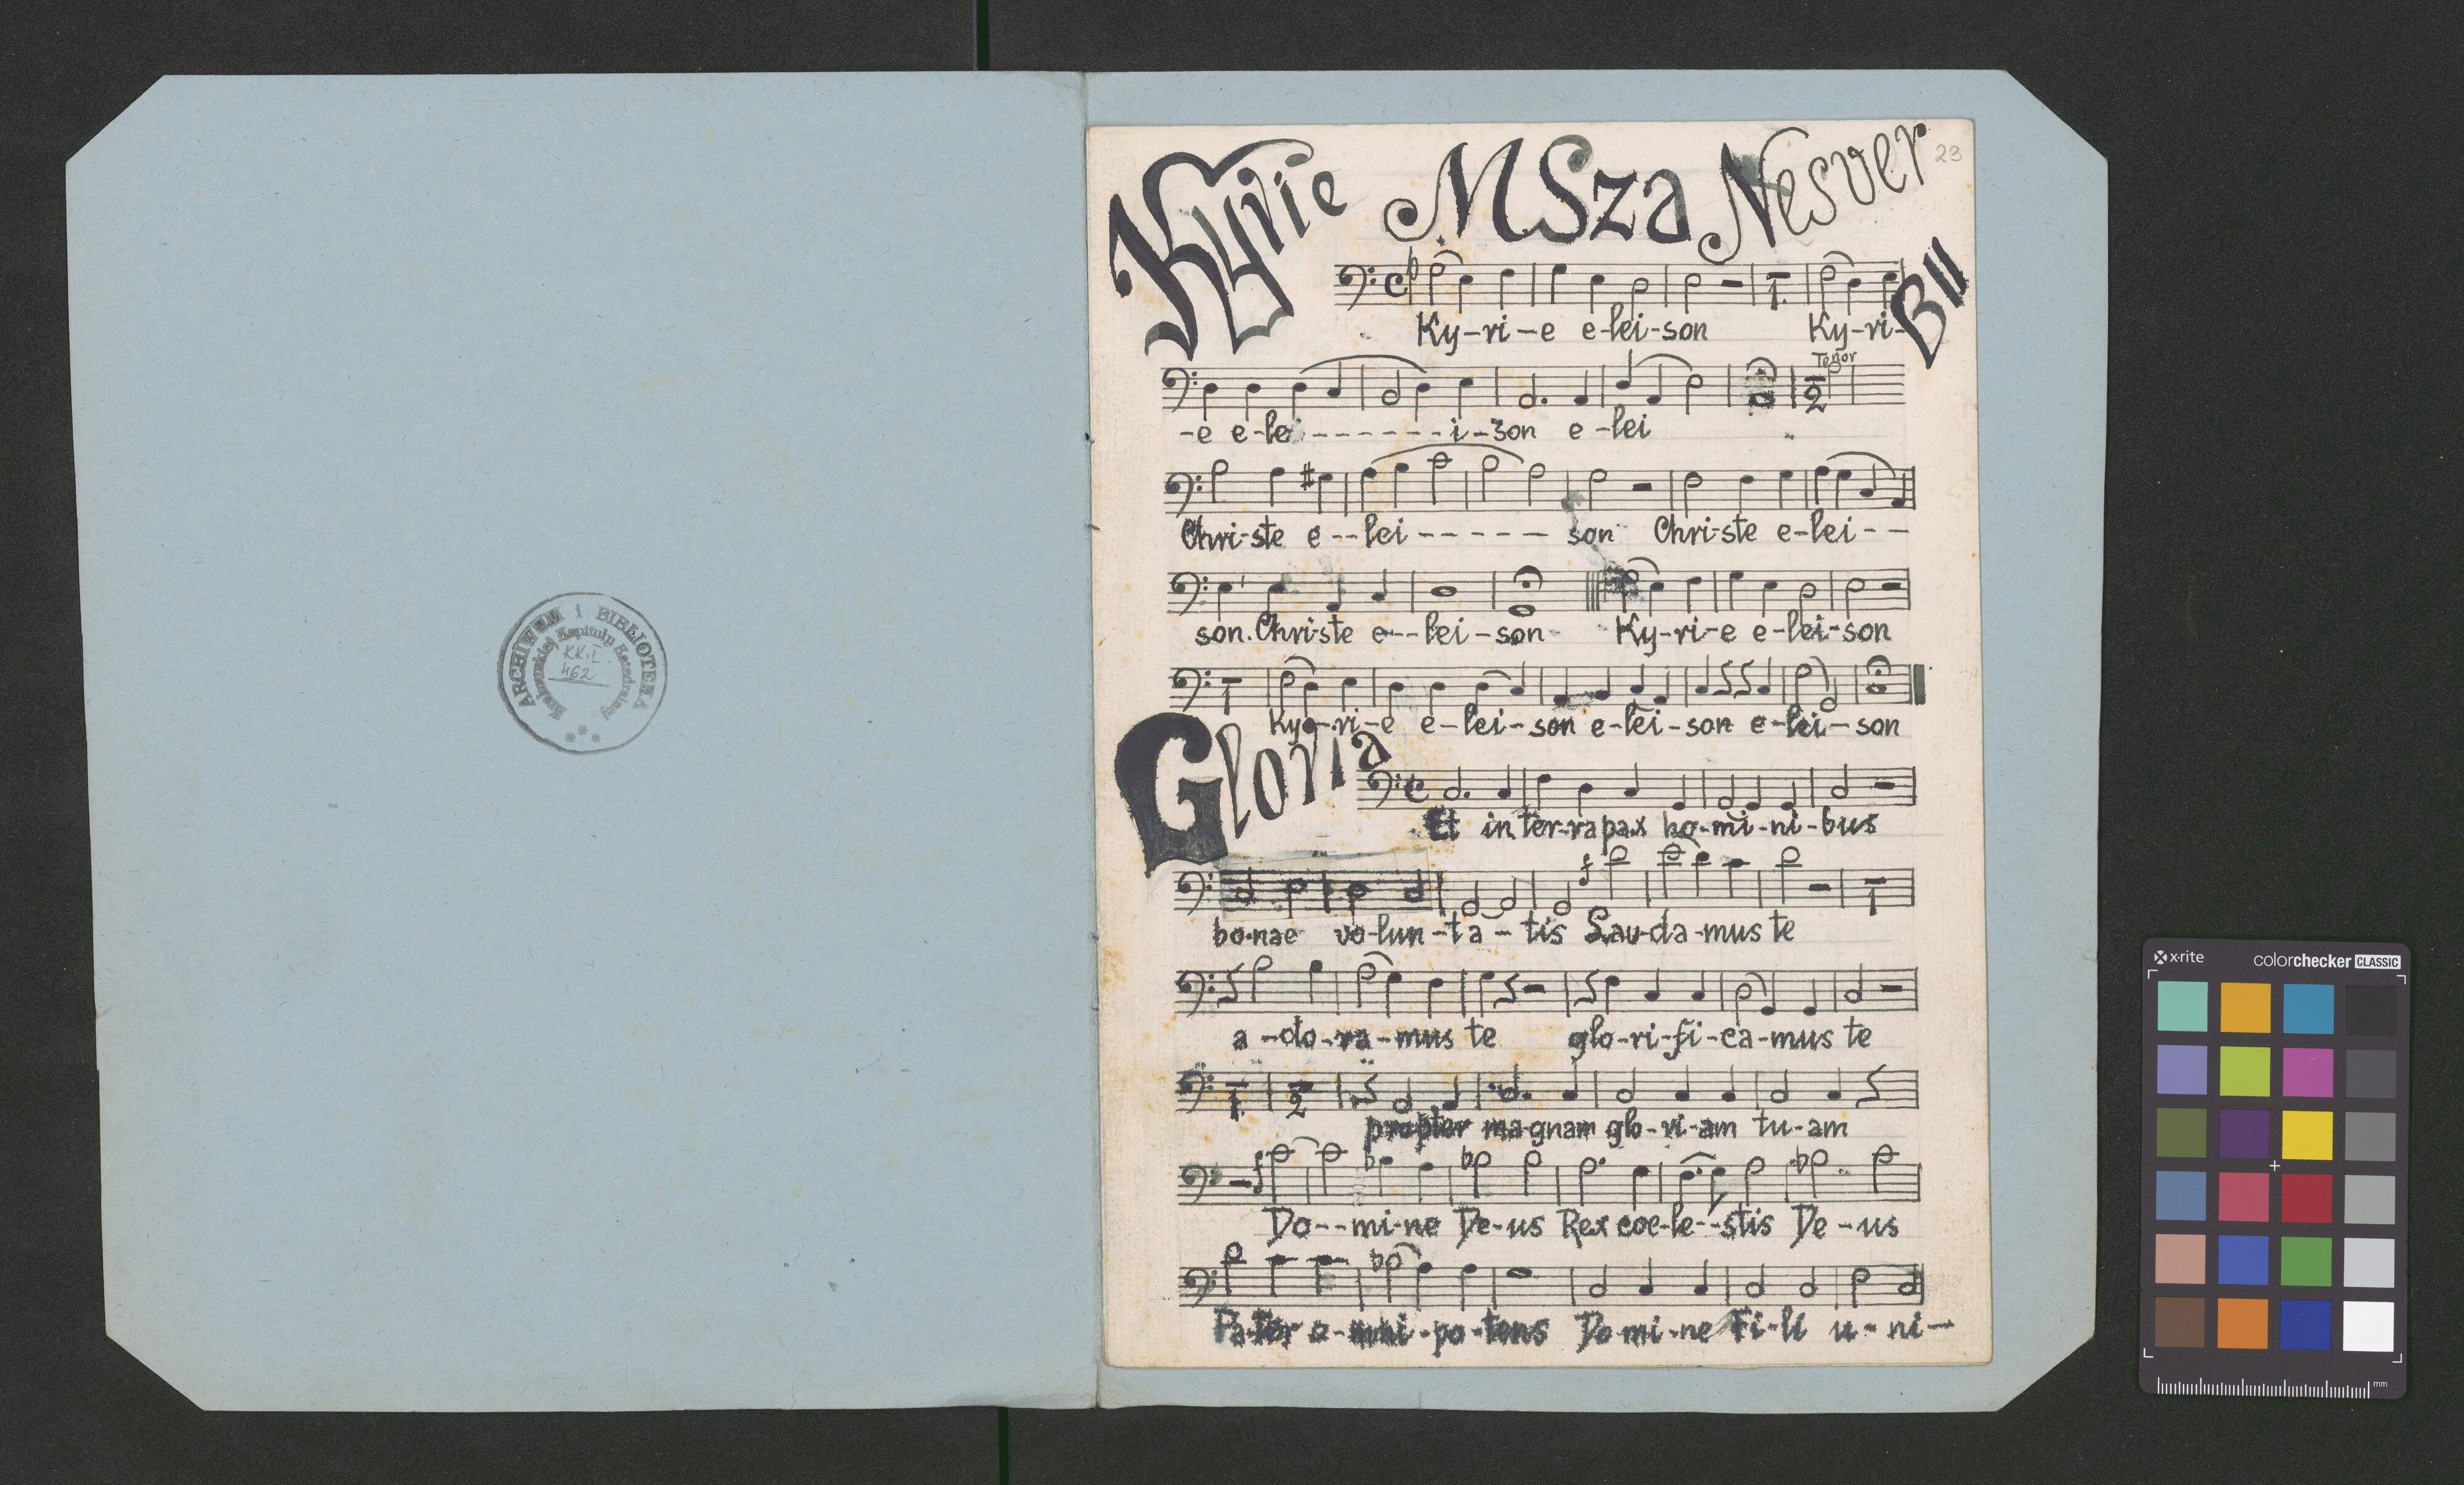 ARCHIWUM i BIBLIOTEKA
Krakowskiej Kapituły Katedralnej
KK.I.
462
Kyrie MSza Nesver
23
BII
Ky-ri-e e-lei-son Ky-ri-
Tenor
2
-e e-lei-------i-son e-lei
Chri-ste e--lei----- son Chri-ste e-lei--
son. Chri-ste e--lei-son Ky-ri-e e-lei-son
Ky-ri-e e-lei-son e-lei-son e-lei-son
Gloria
Et in ter-ra pax ho-mi-ni-bus
f
bo-nae vo-lun-ta-tis Lau-da-mus te
a-do-ra-mus te glo-ri-fi-ca-mus te
2
propter ma-gnam glo-ri-am tu-am
f
Do--mi-ne De-us Rex coe-le--stis De-us
Pa-ter o-mni-po-tens Do-mi-ne Fi-li u-ni-
x-rite colorchecker CLASSIC
mm